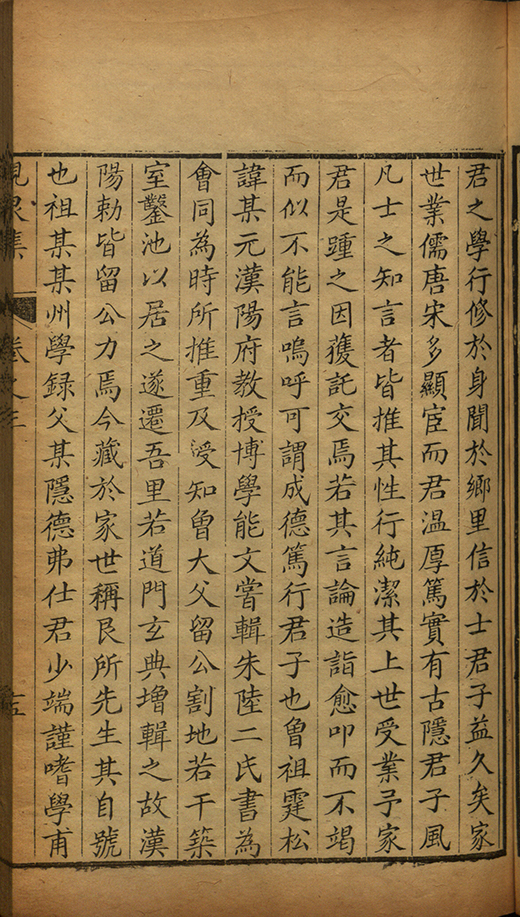 君之學行修於身聞於鄉里信於士君子益久矣家
世業儒唐宋多顯宦而君温厚篤實有古隱君子風
凡士之知言者皆推其性行純潔其上世受業予家
君是踵之因獲託交焉若其言論造詣愈叩而不竭
而似不能言嗚呼可謂成德篤行君子也曾祖霆松
諱某元漢陽府教授博學能文嘗輯朱陸二氏書為
會同為時所推重及受知曾大父留公割地若干築
室鑿池以居之遂遷吾里若道門玄典增輯之故漢
陽勅皆留公力焉今藏於家世稱艮所先生其自號
也祖某某州學録父某隱德弗仕君少端謹嗜學甫
峴泉集 卷之三